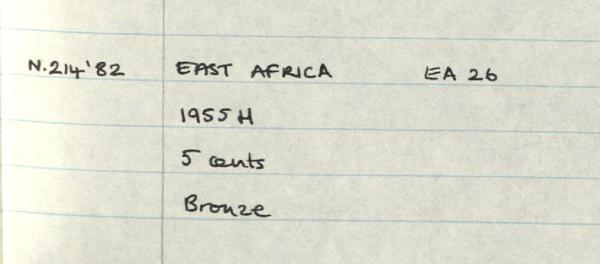 N.214'82 EAST AFRICA EA 26
1955 H
5 cents
Bronze